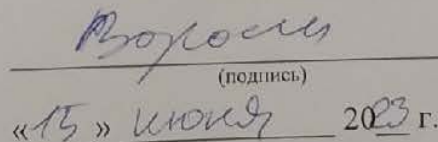 (подпись)
«15» июня 2023 г.